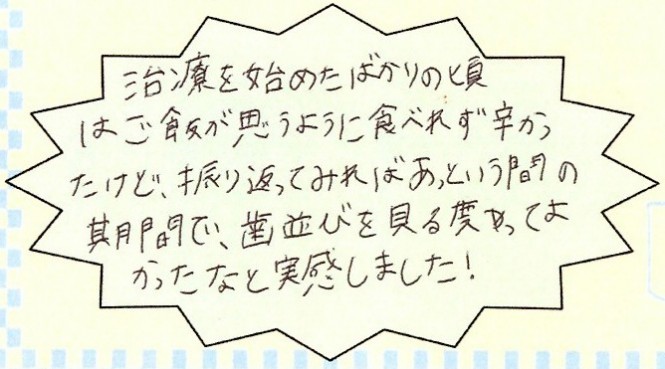 治療を始めたばかりの頃
はご飯が思うように食べれず辛かっ
たけど、振り返ってみればあっという間の
期間で、歯並びを見る度やってよ
かったなと実感しました!